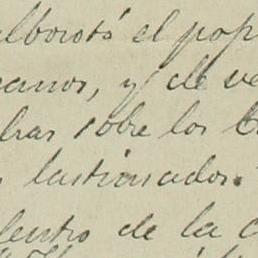 alborotó el pop
canos, y de ve
dras sobre los B
s lastimados.
dentro de la c